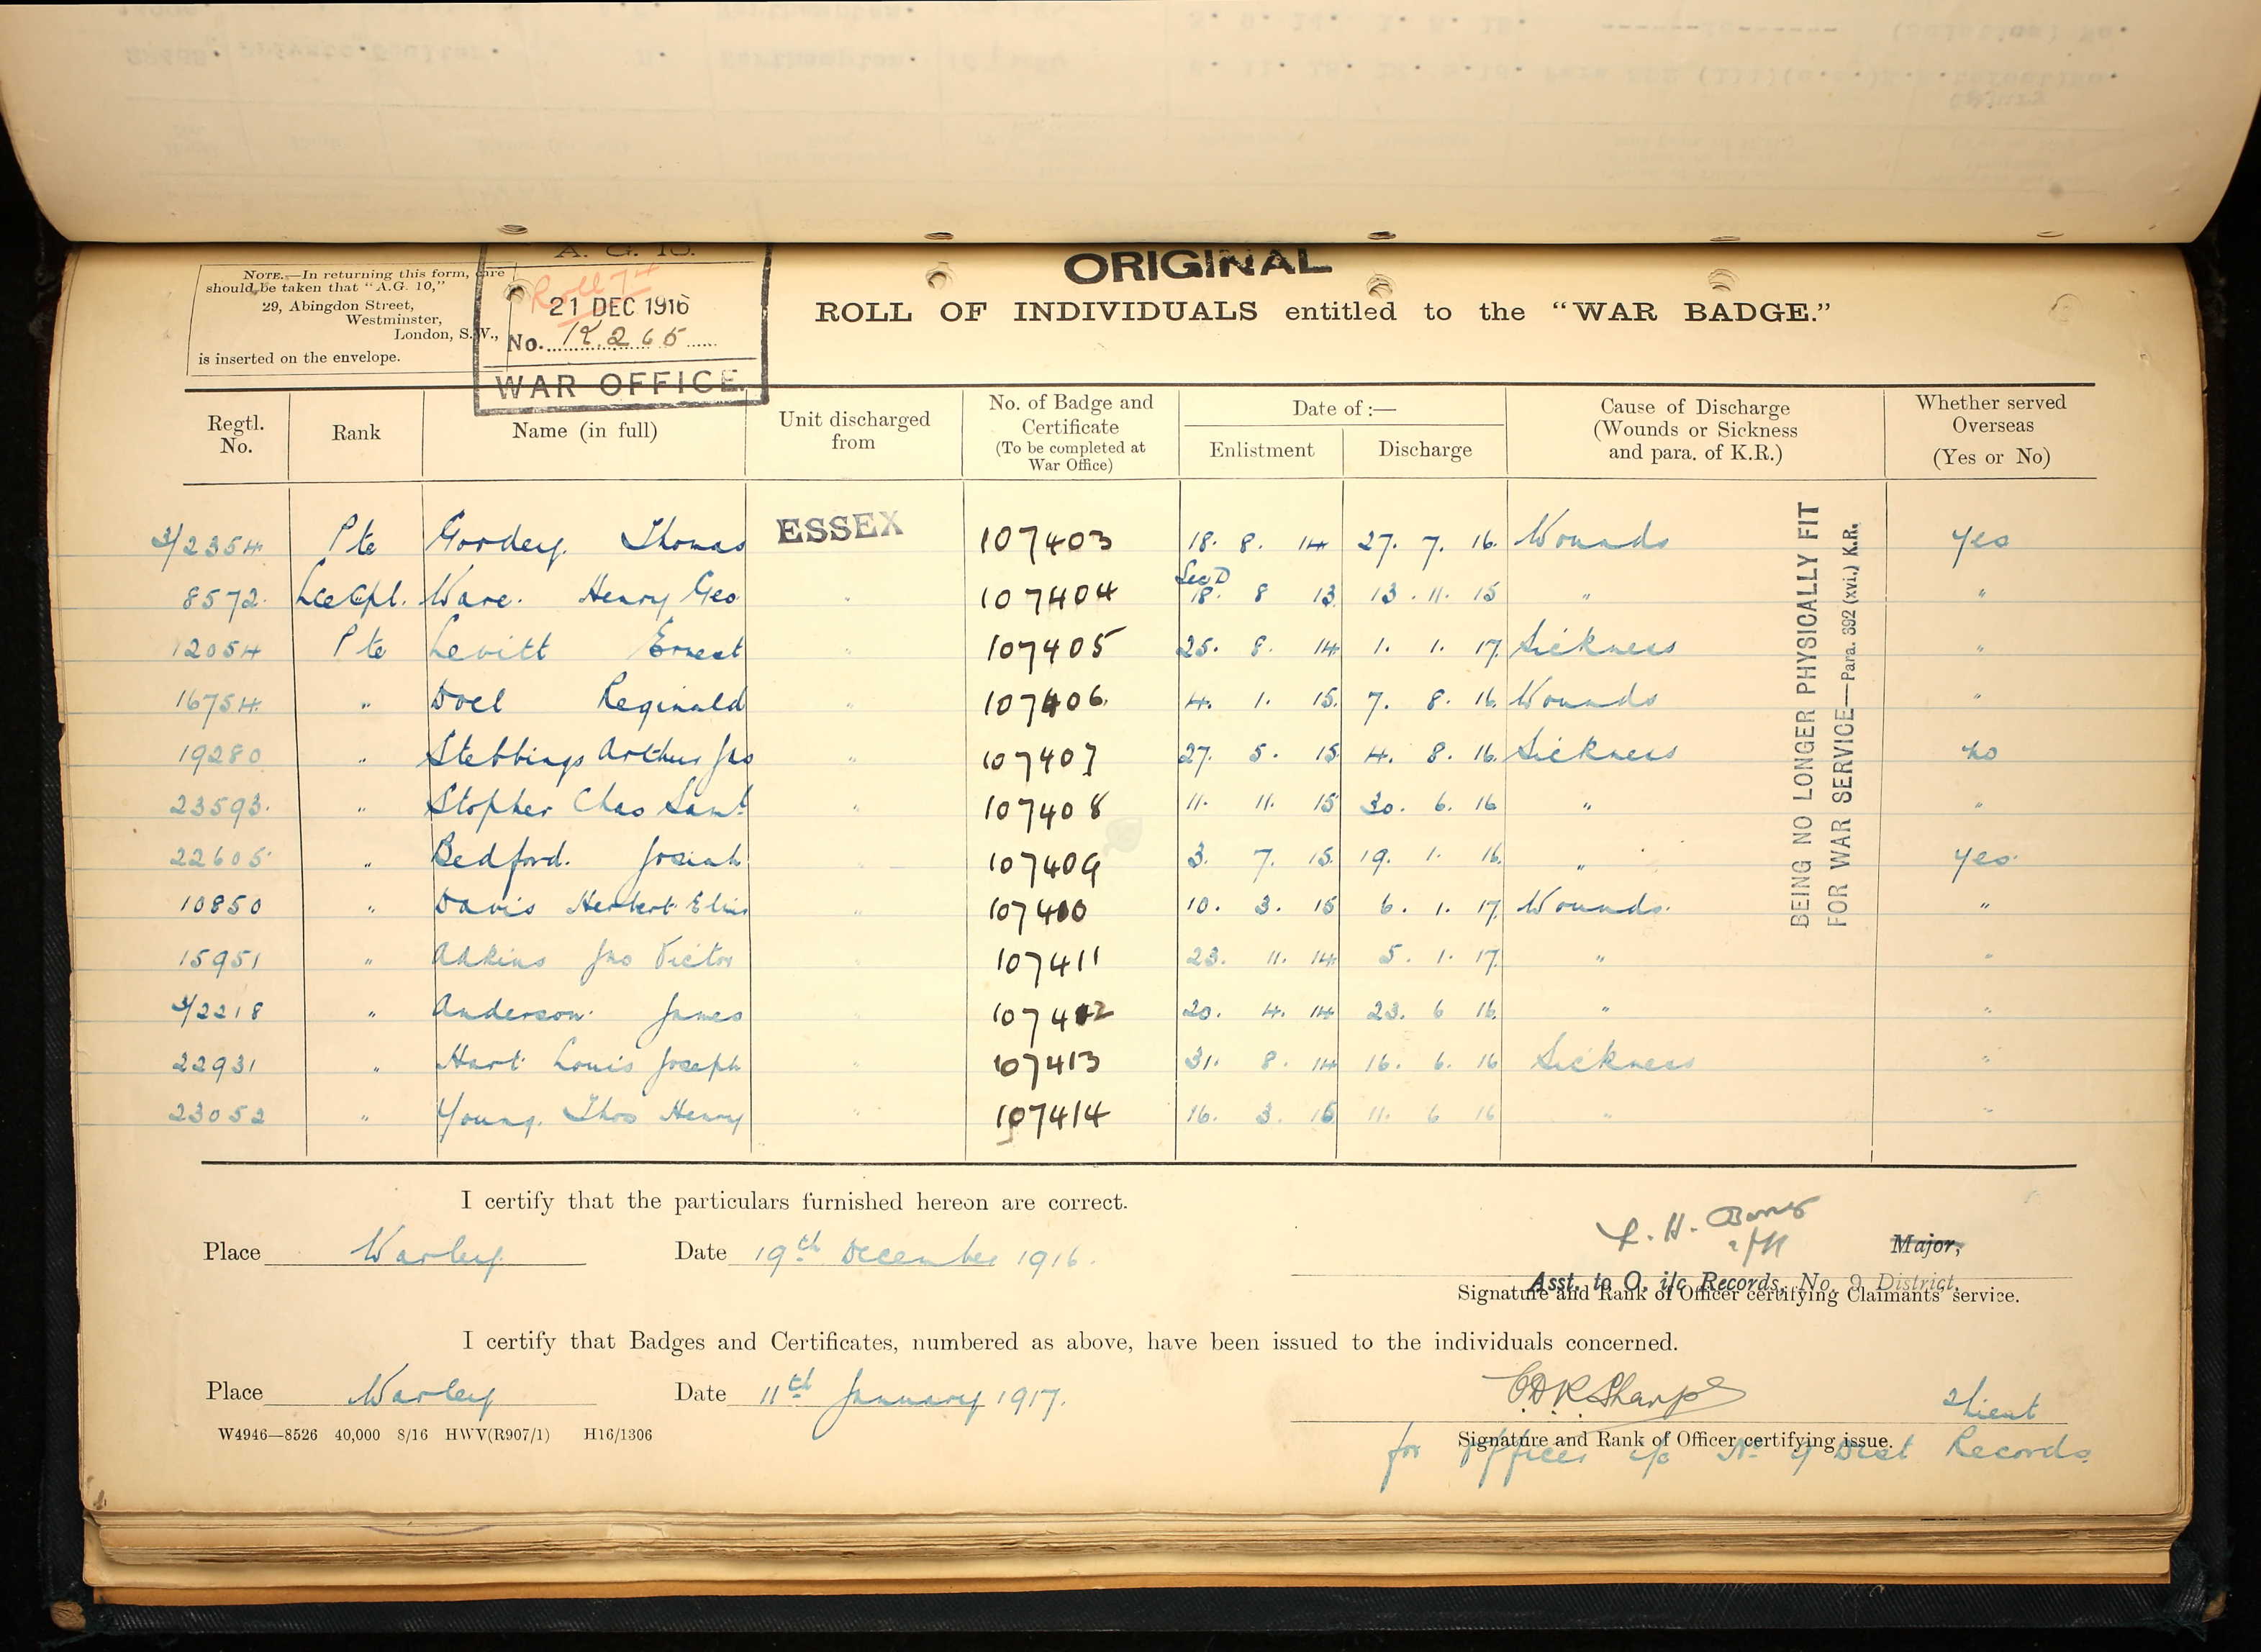 NOTE.—In returning this form, care
should be taken that "A.G. 10,"
29, Abingdon Street,
Westminster,
London, S.W.,
is inserted on the envelope.
A. G. 10.
Roll 74
21 DEC 1916
No. K.265
WAR OFFICE.
ORIGINAL
ROLL OF INDIVIDUALS entitled to the "WAR BADGE."
Regtl. No. Rank Name (in full) Unit discharged from No. of Badge and Certificate (To be completed at War Office) Date of :— Enlistment Discharge Cause of Discharge (Wounds or Sickness and para. of K.R.) Whether served Overseas (Yes or No)
3/2354 Pte Goodey. Thomas ESSEX 107403 18. 8. 14 27. 7. 16. Wounds yes
8572. LceCpl. Ware. Henry Geo " 107404 18. 8 13. 13. 11. 15 " "
12054 Pte Levitt Ernest " 107405 25. 8. 14 1. 1. 17. Sickness "
16754 " Doel Reginald " 107406. 4. 1. 15. 7. 8. 16. Wounds "
19280 " Stebbings Arthur Jno " 107407 27. 5. 15. 4. 8. 16. Sickness no
23593. " Stopher Chas Saml " 107408 11. 11. 15 30. 6. 16 " "
22605. " Bedford. Josiah " 107409 3. 7. 15. 19. 1. 16. " yes.
10850 " Davis Herbert " 107410 10. 3. 15 6. 1. 17. Wounds. "
15951 " Adkins Jno Victor " 107411 23. 11. 14. 5. 1. 17. " "
3/2218 " Anderson. James " 107412 20. 4. 14 23. 6 16. " "
22931 " Hart Louis Joseph " 107413 31. 8. 14 16. 6. 16 Sickness "
23052 " Young. Thos Henry " 107414 16. 3. 15 11. 6 16 " "
BEING NO LONGER PHYSICALLY FIT
FOR WAR SERVICE—Para. 392 (xvi.) K.R.
I certify that the particulars furnished hereon are correct.
Place Warley Date 19th December 1916.
Major,
Asst. to O. i/c Records, No. 9 District.
Signature and Rank of Officer certifying Claimants' service.
I certify that Badges and Certificates, numbered as above, have been issued to the individuals concerned.
Place Warley Date 11th January 1917.
C D R Sharpe 2/Lieut
Signature and Rank of Officer certifying issue.
for Officer i/c No 9 Dist Records
W4946—8526 40,000 8/16 HWV(R907/1) H16/1306